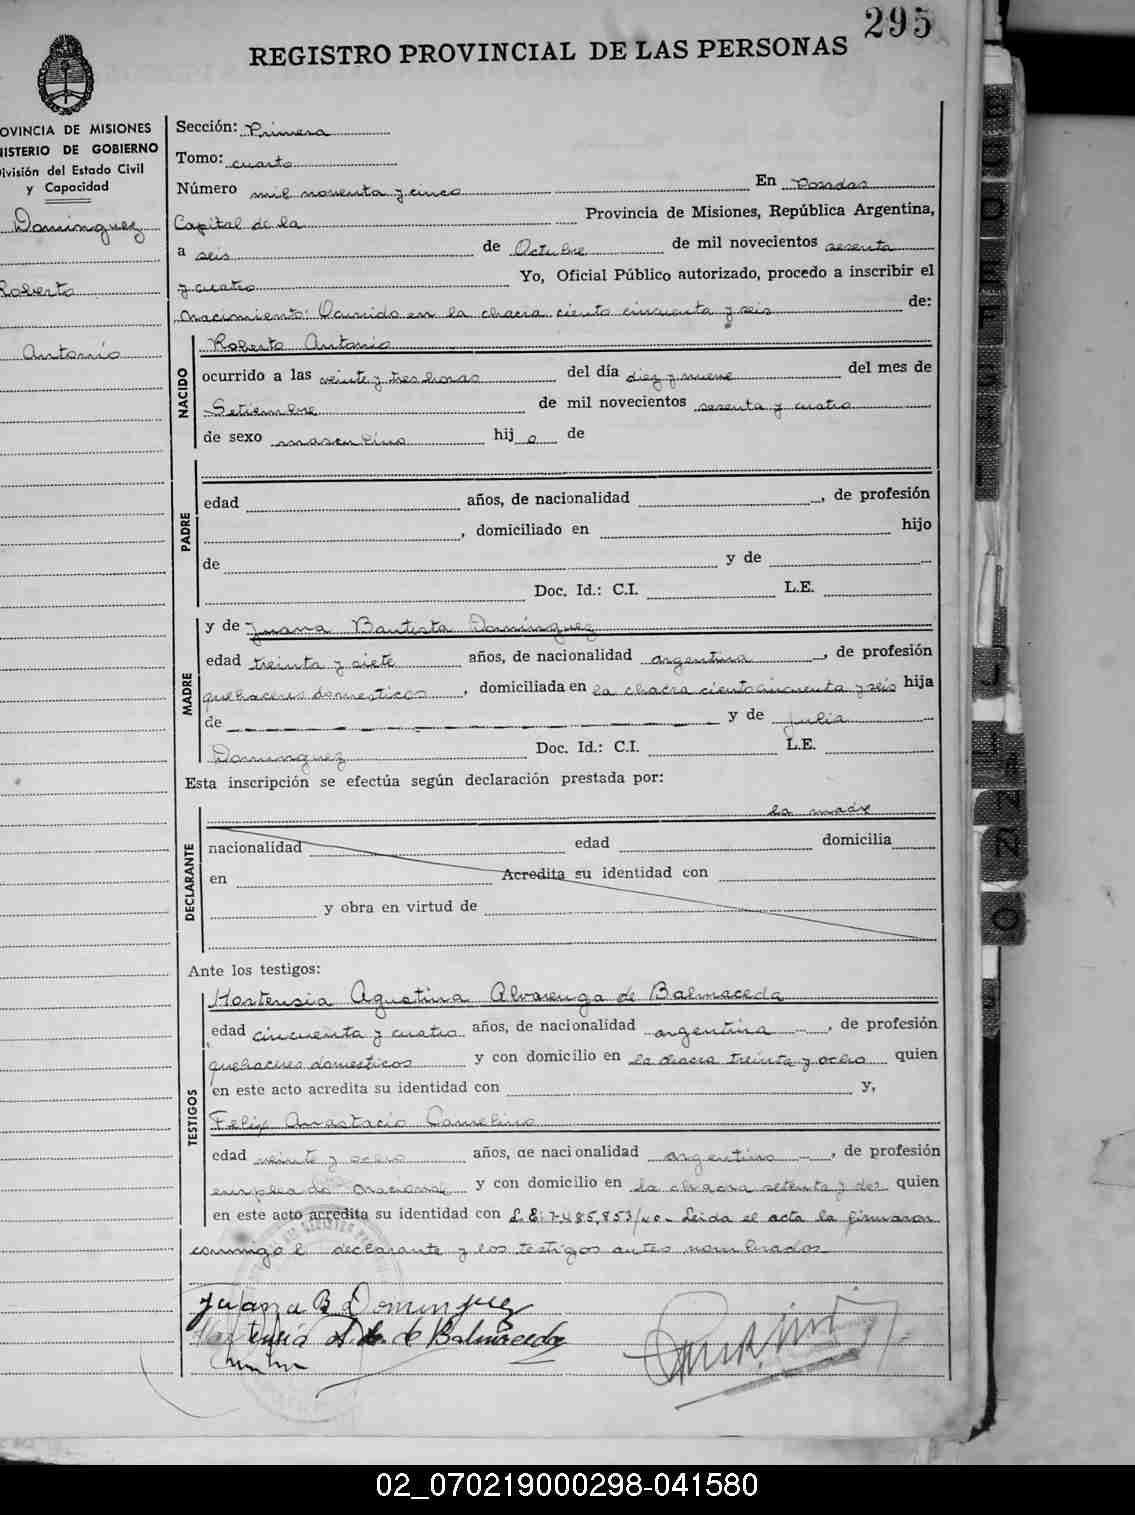 295
REGISTRO PROVINCIAL DE LAS PERSONAS
OVINCIA DE MISIONES
NISTERIO DE GOBIERNO
ivisión del Estado Civil
y Capacidad
Dominguez
Roberto
Antonio
Sección: Primera
Tomo: cuarto
Número mil noventa y cinco En Posadas
Capital de la Provincia de Misiones, República Argentina,
a seis de Octubre de mil novecientos sesenta
y cuatro Yo, Oficial Público autorizado, procedo a inscribir el
nacimiento: Ocurrido en la chacra ciento cincuenta y seis de:
NACIDO
Roberto Antonio
ocurrido a las veinte y tres horas del día diez y nueve del mes de
Setiembre de mil novecientos sesenta y cuatro
de sexo masculino hij o de
PADRE
edad años, de nacionalidad , de profesión
, domiciliado en hijo
de y de
Doc. Id.: C.I. L.E.
MADRE
y de Juana Bautista Dominguez
edad treinta y siete años, de nacionalidad argentina , de profesión
quehaceres domesticos , domiciliada en la chacra ciento cincuenta y seis hija
de y de Julia
Dominguez Doc. Id.: C.I. L.E.
Esta inscripción se efectúa según declaración prestada por:
la madre
DECLARANTE
nacionalidad edad domicilia
en Acredita su identidad con
y obra en virtud de
Ante los testigos:
TESTIGOS
Hortensia Agustina Alvarenga de Balmaceda
edad cincuenta y cuatro años, de nacionalidad argentina , de profesión
quehaceres domesticos y con domicilio en la chacra treinta y ocho quien
en este acto acredita su identidad con y,
Felix Anastacio Camelino
edad veinte y ocho años, de nacionalidad argentino , de profesión
empleado nacional y con domicilio en la chacra setenta y dos quien
en este acto acredita su identidad con L.E: 7.485.853/ Leida el acta la firmaron
conmigo el declarante y los testigos antes nombrados
Juana B Dominguez
Hortensia A. de Balmaceda
02_070219000298-041580